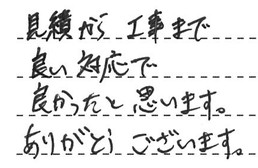 見積から工事まで
良い対応で
良かったと思います。
ありがとうございます。